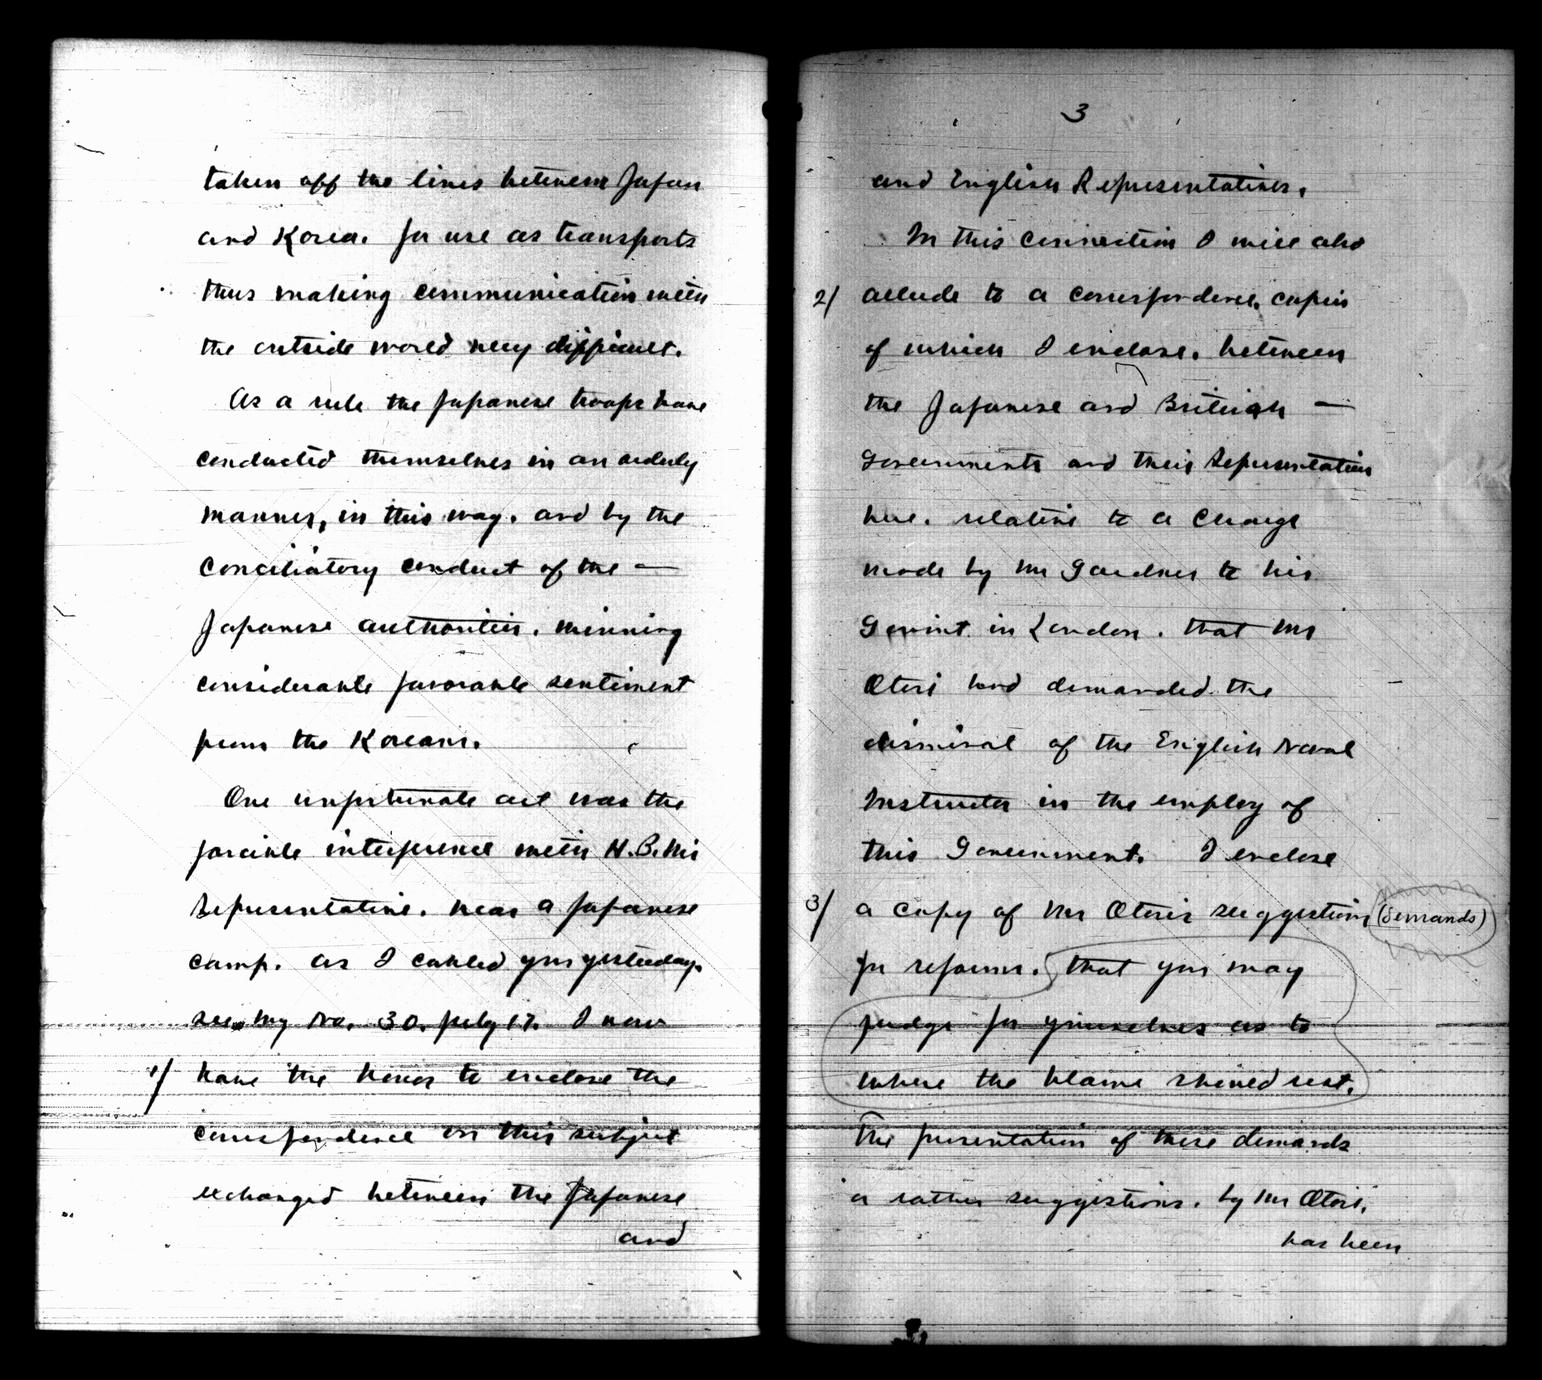 taken off the lines between Japan
and Korea. for use as transports
thus making communication with
the outside world very difficult.
As a rule the Japanese troops have
conducted themselves in an orderly
manner, in this way. and by the
conciliatory conduct of the —
Japanese authorities. winning
considerable favorable sentiment
from the Koreans.
One unfortunate act was the
forcible interference with H.B.M's
Representative. near a Japanese
camp. as I cabled you yesterday.
see my No. 30. July 17. I now
1/ have the honor to enclose the
correspondence on this subject
exchanged between the Japanese
and
3
and English Representatives.
In this connection I will also
2/ allude to a correspondence. copies
of which I enclose. between
the Japanese and British —
Governments and their Representatives
here. relative to a charge
made by Mr Gardner to his
Govmnt. in London. that Mr
Otori had demanded the
dismissal of the English Naval
Instructor in the employ of
this Government. I enclose
3/ a copy of Mr Otori's suggestions (demands)
for reforms. that you may
judge for yourselves as to
where the blame should rest.
The presentation of these demands
or rather suggestions. by Mr Otori,
has been